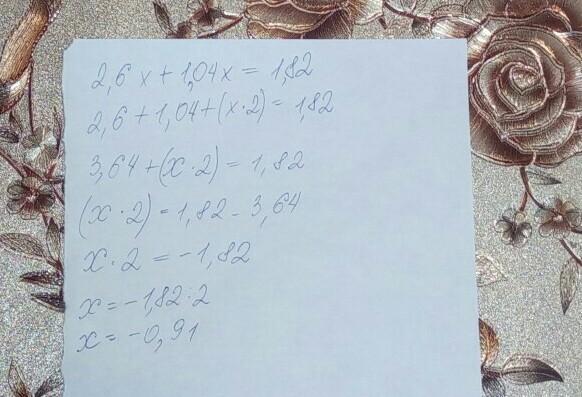 2,6 x + 1,04x = 1,82
2,6 + 1,04 + (x · 2) = 1,82
3,64 + (x · 2) = 1,82
(x · 2) = 1,82 - 3,64
x · 2 = -1,82
x = -1,82 : 2
x = -0,91